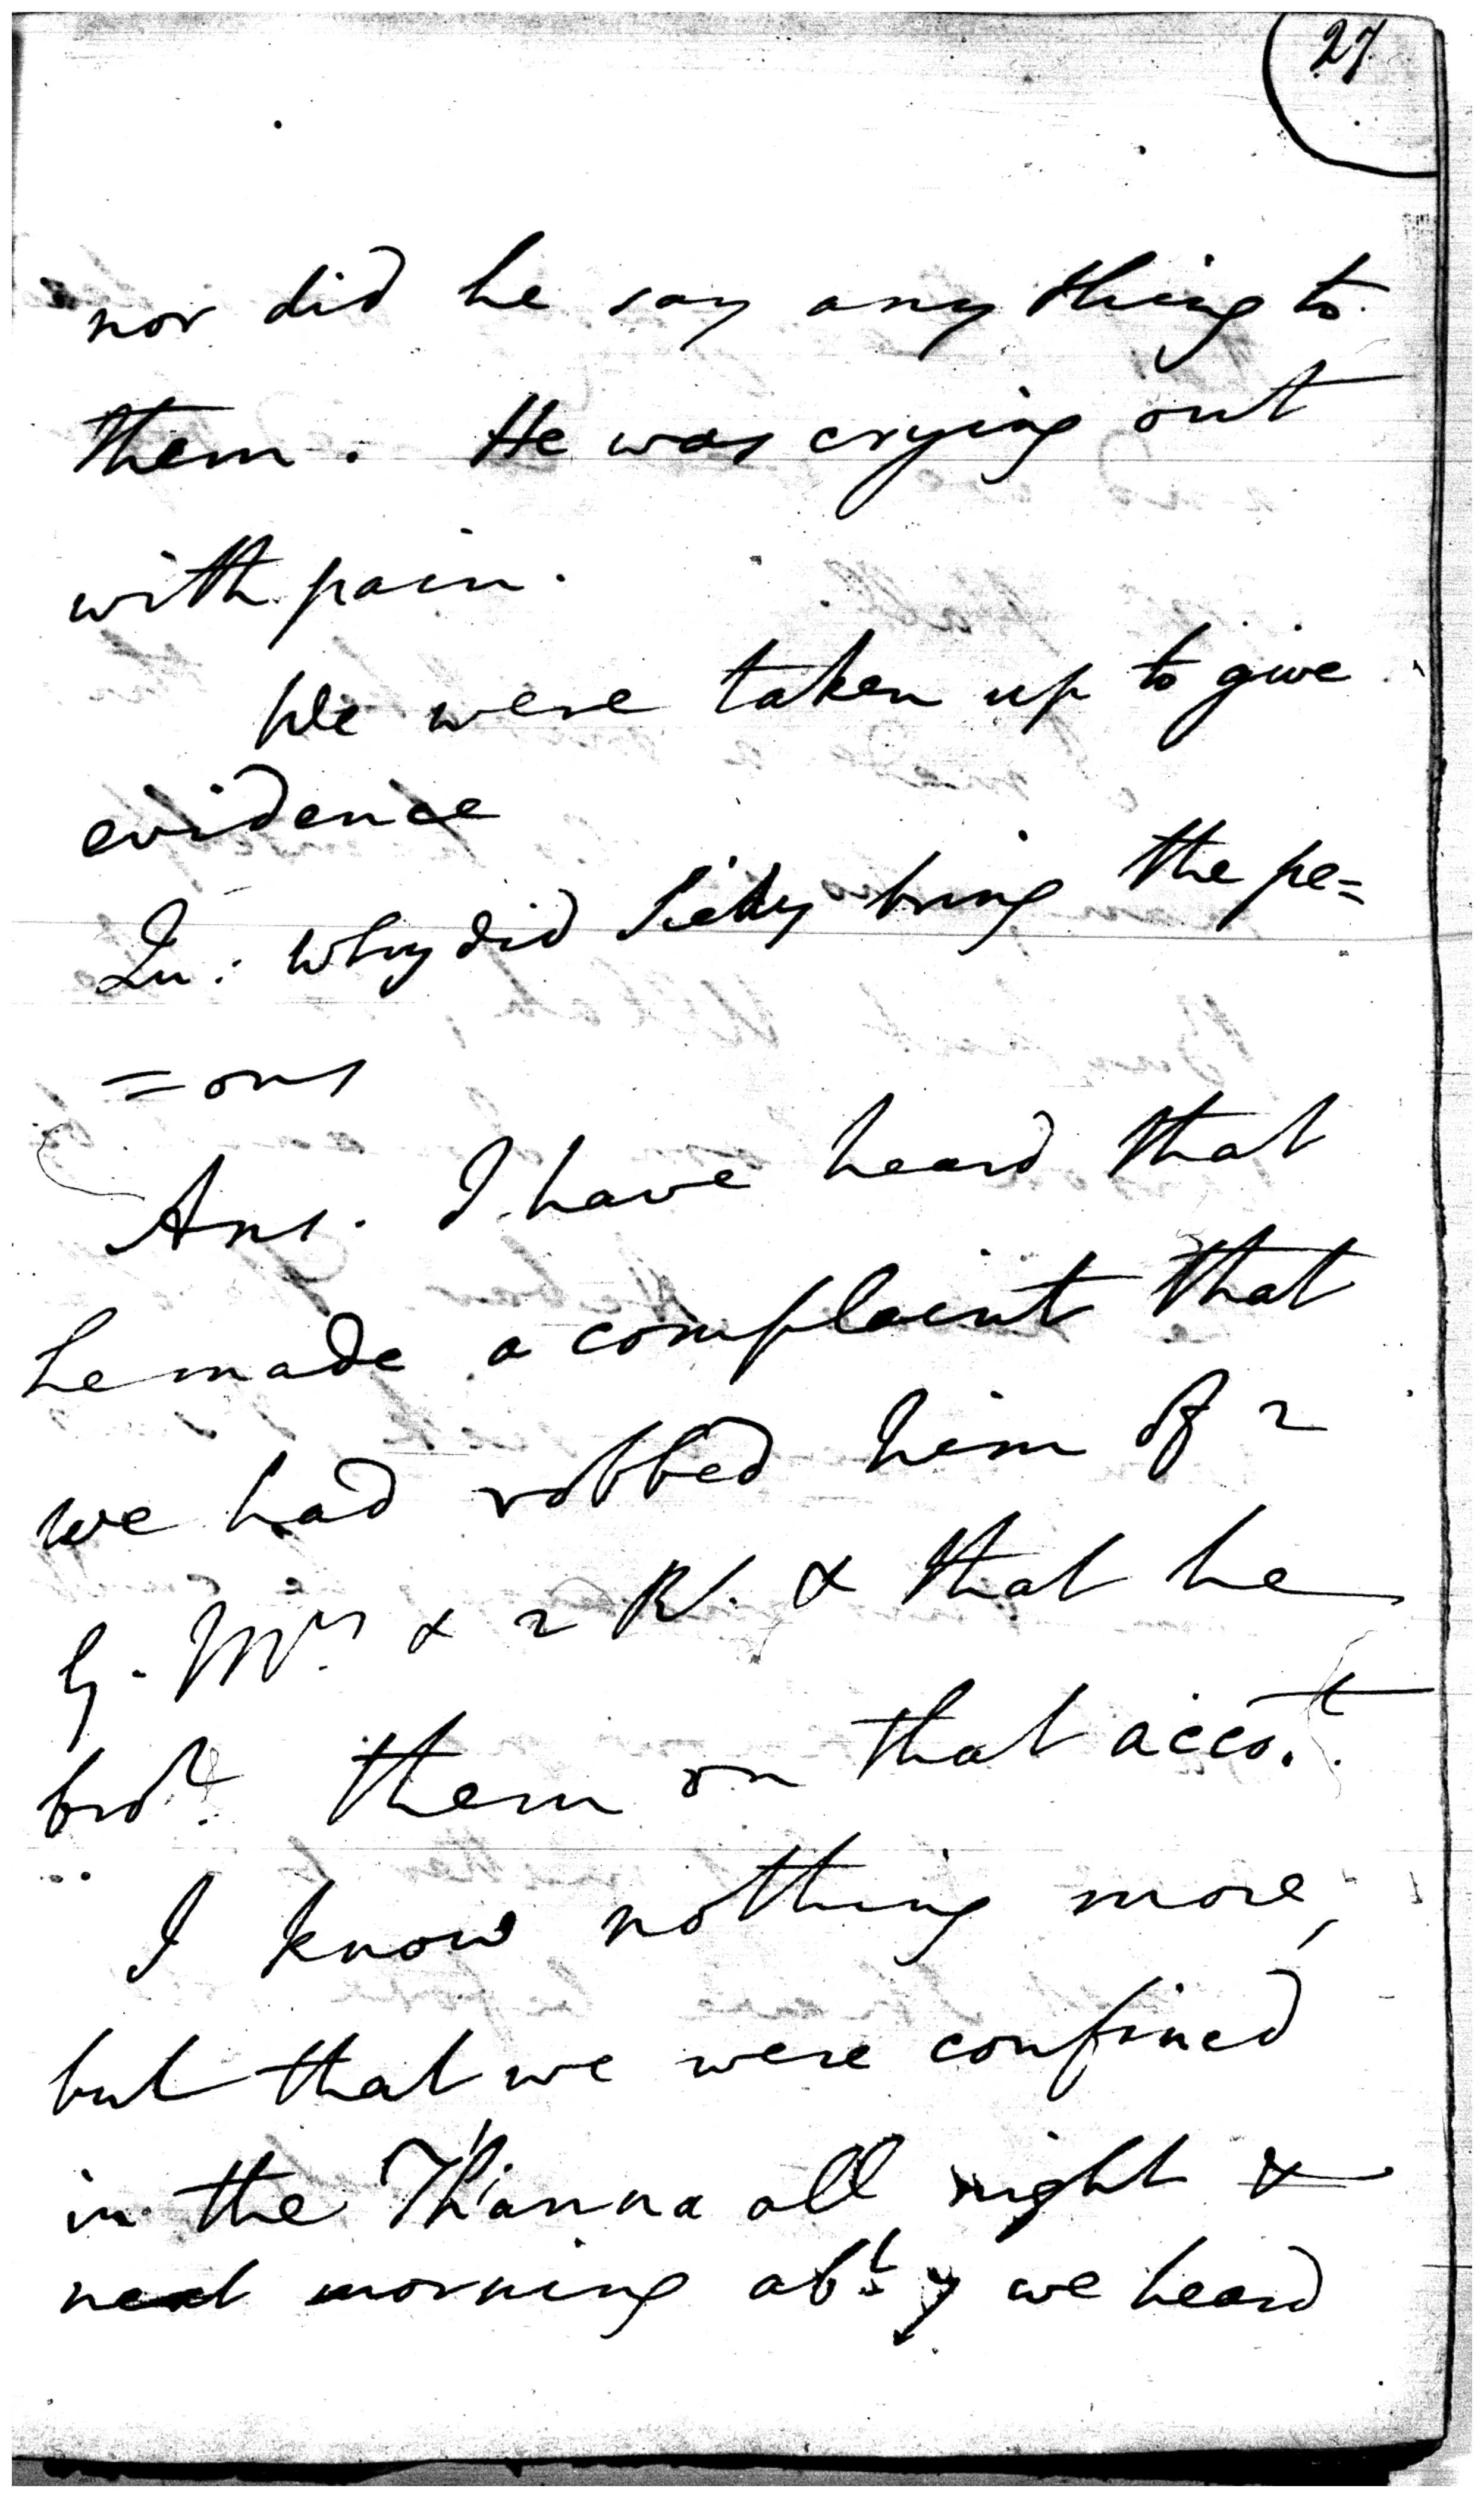 27
nor did he say any thing to
them. He was crying out
with pain.
We were taken up to give
evidence
Qu: Why did bring the pe=
=ons
Ans. I have heard that
he made a complaint that
we had robbed him of 2
G. Mrs & 2 Rs. & that he
brot. them on that accot.
I know nothing more,
but that we were confined
in the Thanna all night &
next morning abt 7 we heard